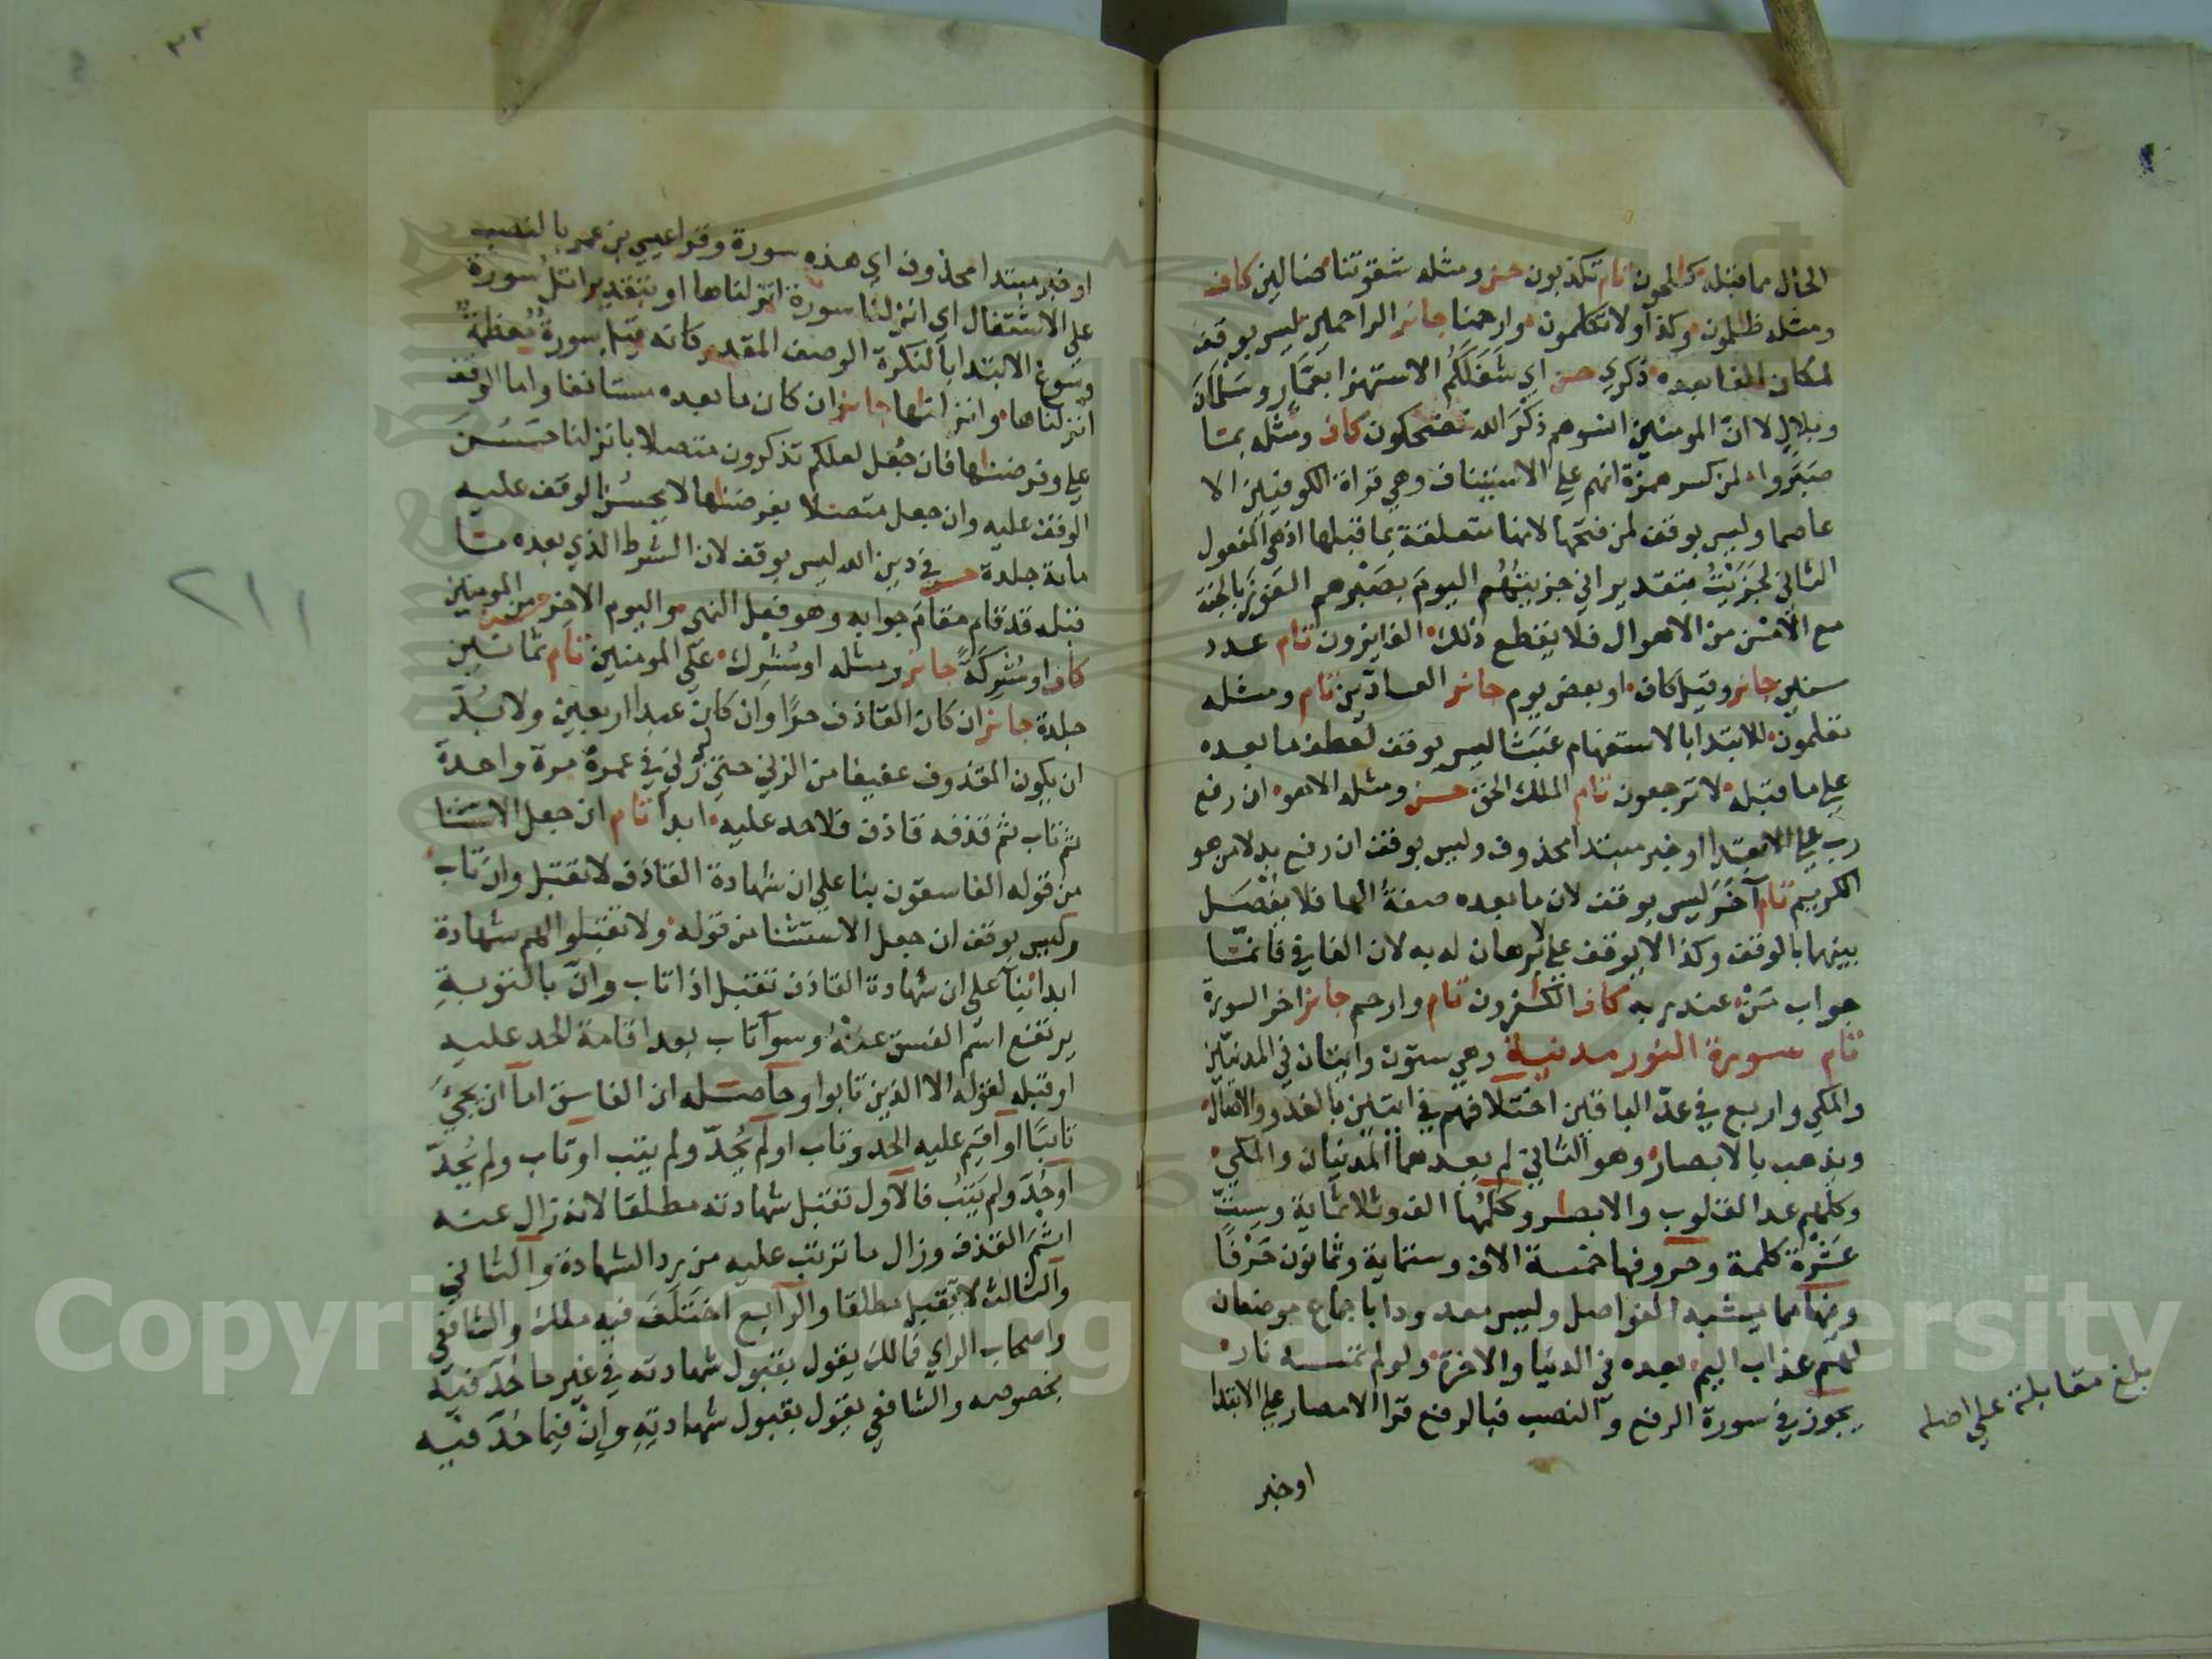 الحال مما قبله كالحون تام تكذبون حسن ومثله شقوتنا ضالين كاف
ومثله ظلمون وكذا ولا تكلمون وارحمنا جائز الراحمين ليس بوقف
لمكان الفا بعده ذكري حسن اي شَغَلَكُم الاستهزا بعَمَّارٍ وسَلْمَانَ
وبلالٍ لا انّ المومنين انسوهم ذكرَ الله تضحكون كاف ومثله بما
صَبَروا لمن كسر همزة انهم علي الاستيناف وهي قراة الكوفيين الا
عاصما وليس بوقف لمن فتحها لانها متعلقة بما قبلها اذ هي المفعول
الثاني لجَزَيْتُ بتقدير اني جزيتهُم اليومَ بصَبْرهم الفَوْزَ بالجنة
مع الأمْن من الاهوال فلا يقطع ذلك الفايزون تام عدد
سنين جائز وقيل كاف او بعض يوم جائز العادّين تام ومثله
تعلمون للابتدا بالاستفهام عَبَثا ليس بوقف لعطف ما بعده
علي ما قبله لا ترجعون تام الملك الحق حسن ومثله الا هو ان رفع
رب علي الابتدا او خبر مبتدا محذوف وليس بوقف ان رفع بدلا من هو
الكريم تام آخَرَ ليس بوقف لان ما بعده صفةُ الها فلا يفْصَل
بينهما بالوقف وكذا لا يوقف علي لا برهان له به لان الفا في فانمّا
جواب مَنْ عند ربه كاف الكفرون تام وارحم جائز اخر السورة
تام سورة النور مدنية وهي ستون وايتان في المدنيّين
والمكي واربع في عدّ الباقين اختلافهم في ايتين بالغدو والاصال
ويذهب بالابصار وهو الثاني لم يعدهما المدنيان والمكي
وكلهم عد القلوب والابصار وكلمُها الف وثلاثماية وسِتّ
عَشْرَة كلمة وحروفها خمسة الاف وستماية وثمانون حَرْفًا
وفيها مما يشبه الفواصل وليس معدودا باجماع موضعان
لهم عذاب اليم بعده في الدنيا والاخرة ولو لم تمسسه نار
يجوز في سورة الرفع والنصب فبالرفع قرا الامصار علي الابتدا
او خبر
بلغ مقابلة علي اصله
او خبر مبتدا محذوف اي هذه سورة وقرا عيسي بن عمر بالنصب
علي الاشتغال اي انزلنا سورة انزلناها او بتقدير اتلُ سورة
وسَوغ الابتدا بالنكرة الوصف المقدر كانه قيل سورةٌ مُعظمةٌ
انزلناها وانزلنها جائز ان كان ما بعده مستانفا واما الوقف
علي وفرضنها فان جُعل لعلكم تذكرون متصلا بانزلنا حَسُنَ
الوقف عليه وان جعل متصلا بفرضنها لا يحسُن الوقف عليه
ماية جلدة حسن في دين الله ليس بوقف لان الشرط الذي بعده ما
قبله قد قام مقامَ جوابه وهو فعل النهي واليوم الاخر حسن من المومنين
كاف او مُشركَةً جائز ومثله او مُشْرِك علي المومنين تام ثمانين
جلدة جائز ان كان القاذف حرًا وان كان عبدا اربعين ولا بُدّ
ان يكون المقذوف عفيفا من الزني حتي لو زَني في عمره مرة واحدة
ثم تاب ثم قذفه قاذف فلا حد عليه ابدا تام ان جعل الاستثنا
من قوله الفاسقون بنا علي ان شهادة القاذف لا تقبل وان تاب
وليس بوقف ان جعل الاستثنا من قوله ولا تقبلوا لهم شهادة
ابدا بناً علي ان شهادة القاذف تقبل اذا تاب وانّ بالتوبةِ
يرتفع اسم الفسق عَنْهُ وسوآ تاب بعد اقامة الحد عليه
او قبله لقوله الا الذين تابوا وحاصله ان الفاسق اما ان يجيَ
تايبًا او اقيم عليه الحد وتاب او لم يُحدّ ولم يتب او تاب ولم يُحدّ
او حُدّ ولم يَتُب فالاول تقبل شهادته مطلقا لانه زال عنه
اسم القذف وزال ما ترتب عليه من رد الشهادة والثاني
والثالث لا تقبل مطلقا والرابع اختَلَفَ فيه ملك والشافعي
واصحاب الراي فمالك يقول بقبول شهادته في غير ما حُدّ فيه
بخصوصه والشافعي يقول بقبول شهادتهِ وان فيما حُدّ فيه
٢١١
Copyright © King Saud University